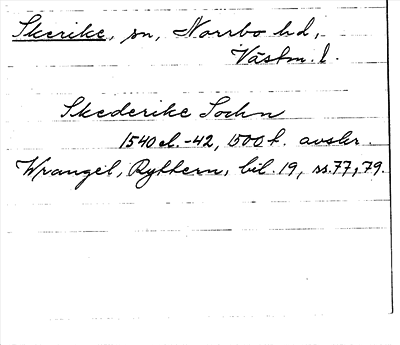 Skerike, sn, Norrbo hd,
Västm. l.
Skederike Sochn
1540 el. -42, 1500 t. avskr.
Wrangel, Ryttern, bil. 19, ss. 77, 79.